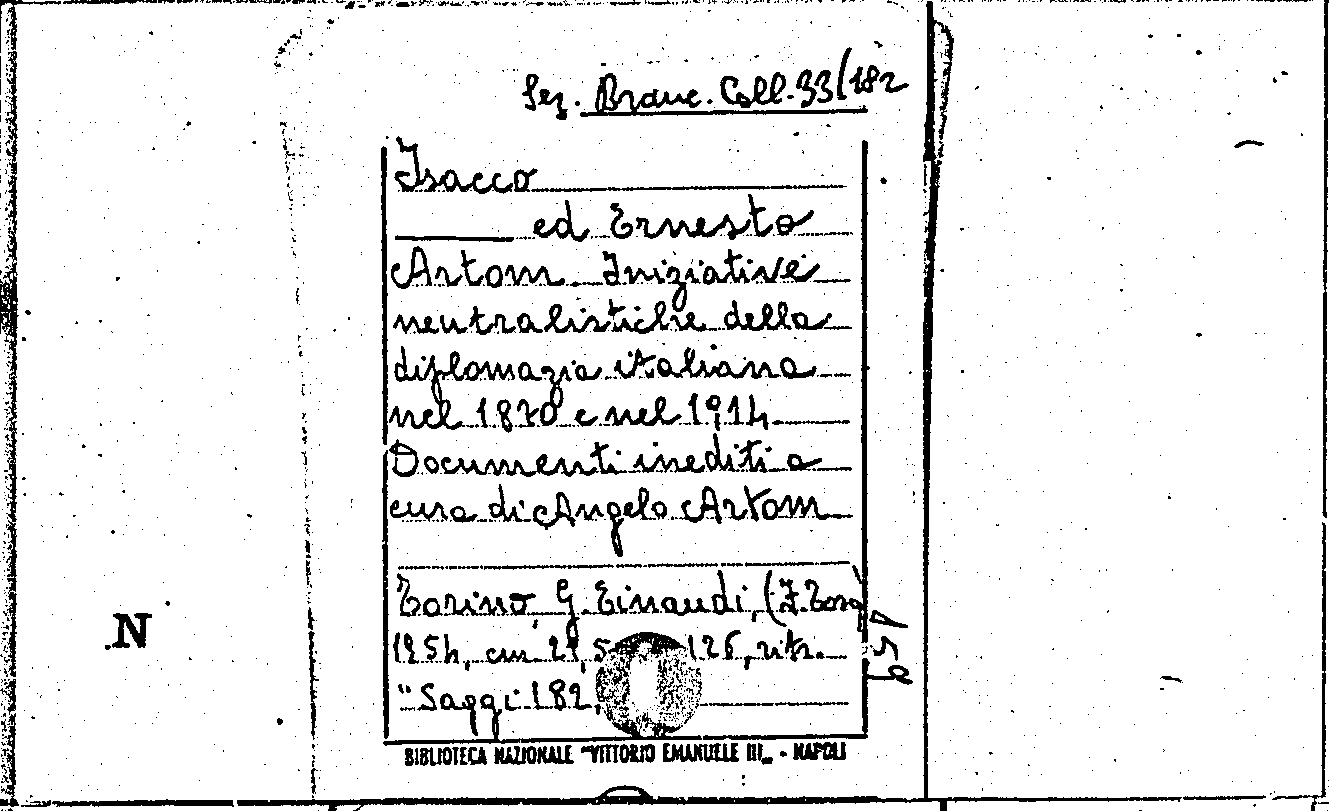 Sez. Branc. Coll. 33/182
Isacco
ed Ernesto
Artom Iniziative
neutralistiche della
diplomazia italiana
nel 1870 e nel 1914.
Documenti inediti a
cura di Angelo Artom
Torino, G. Einaudi, (F. Toso)
1954, cm. 21,5 126, ritr.
"Saggi 182,
N
BIBLIOTECA NAZIONALE "VITTORIO EMANUELE III„ - NAPOLI